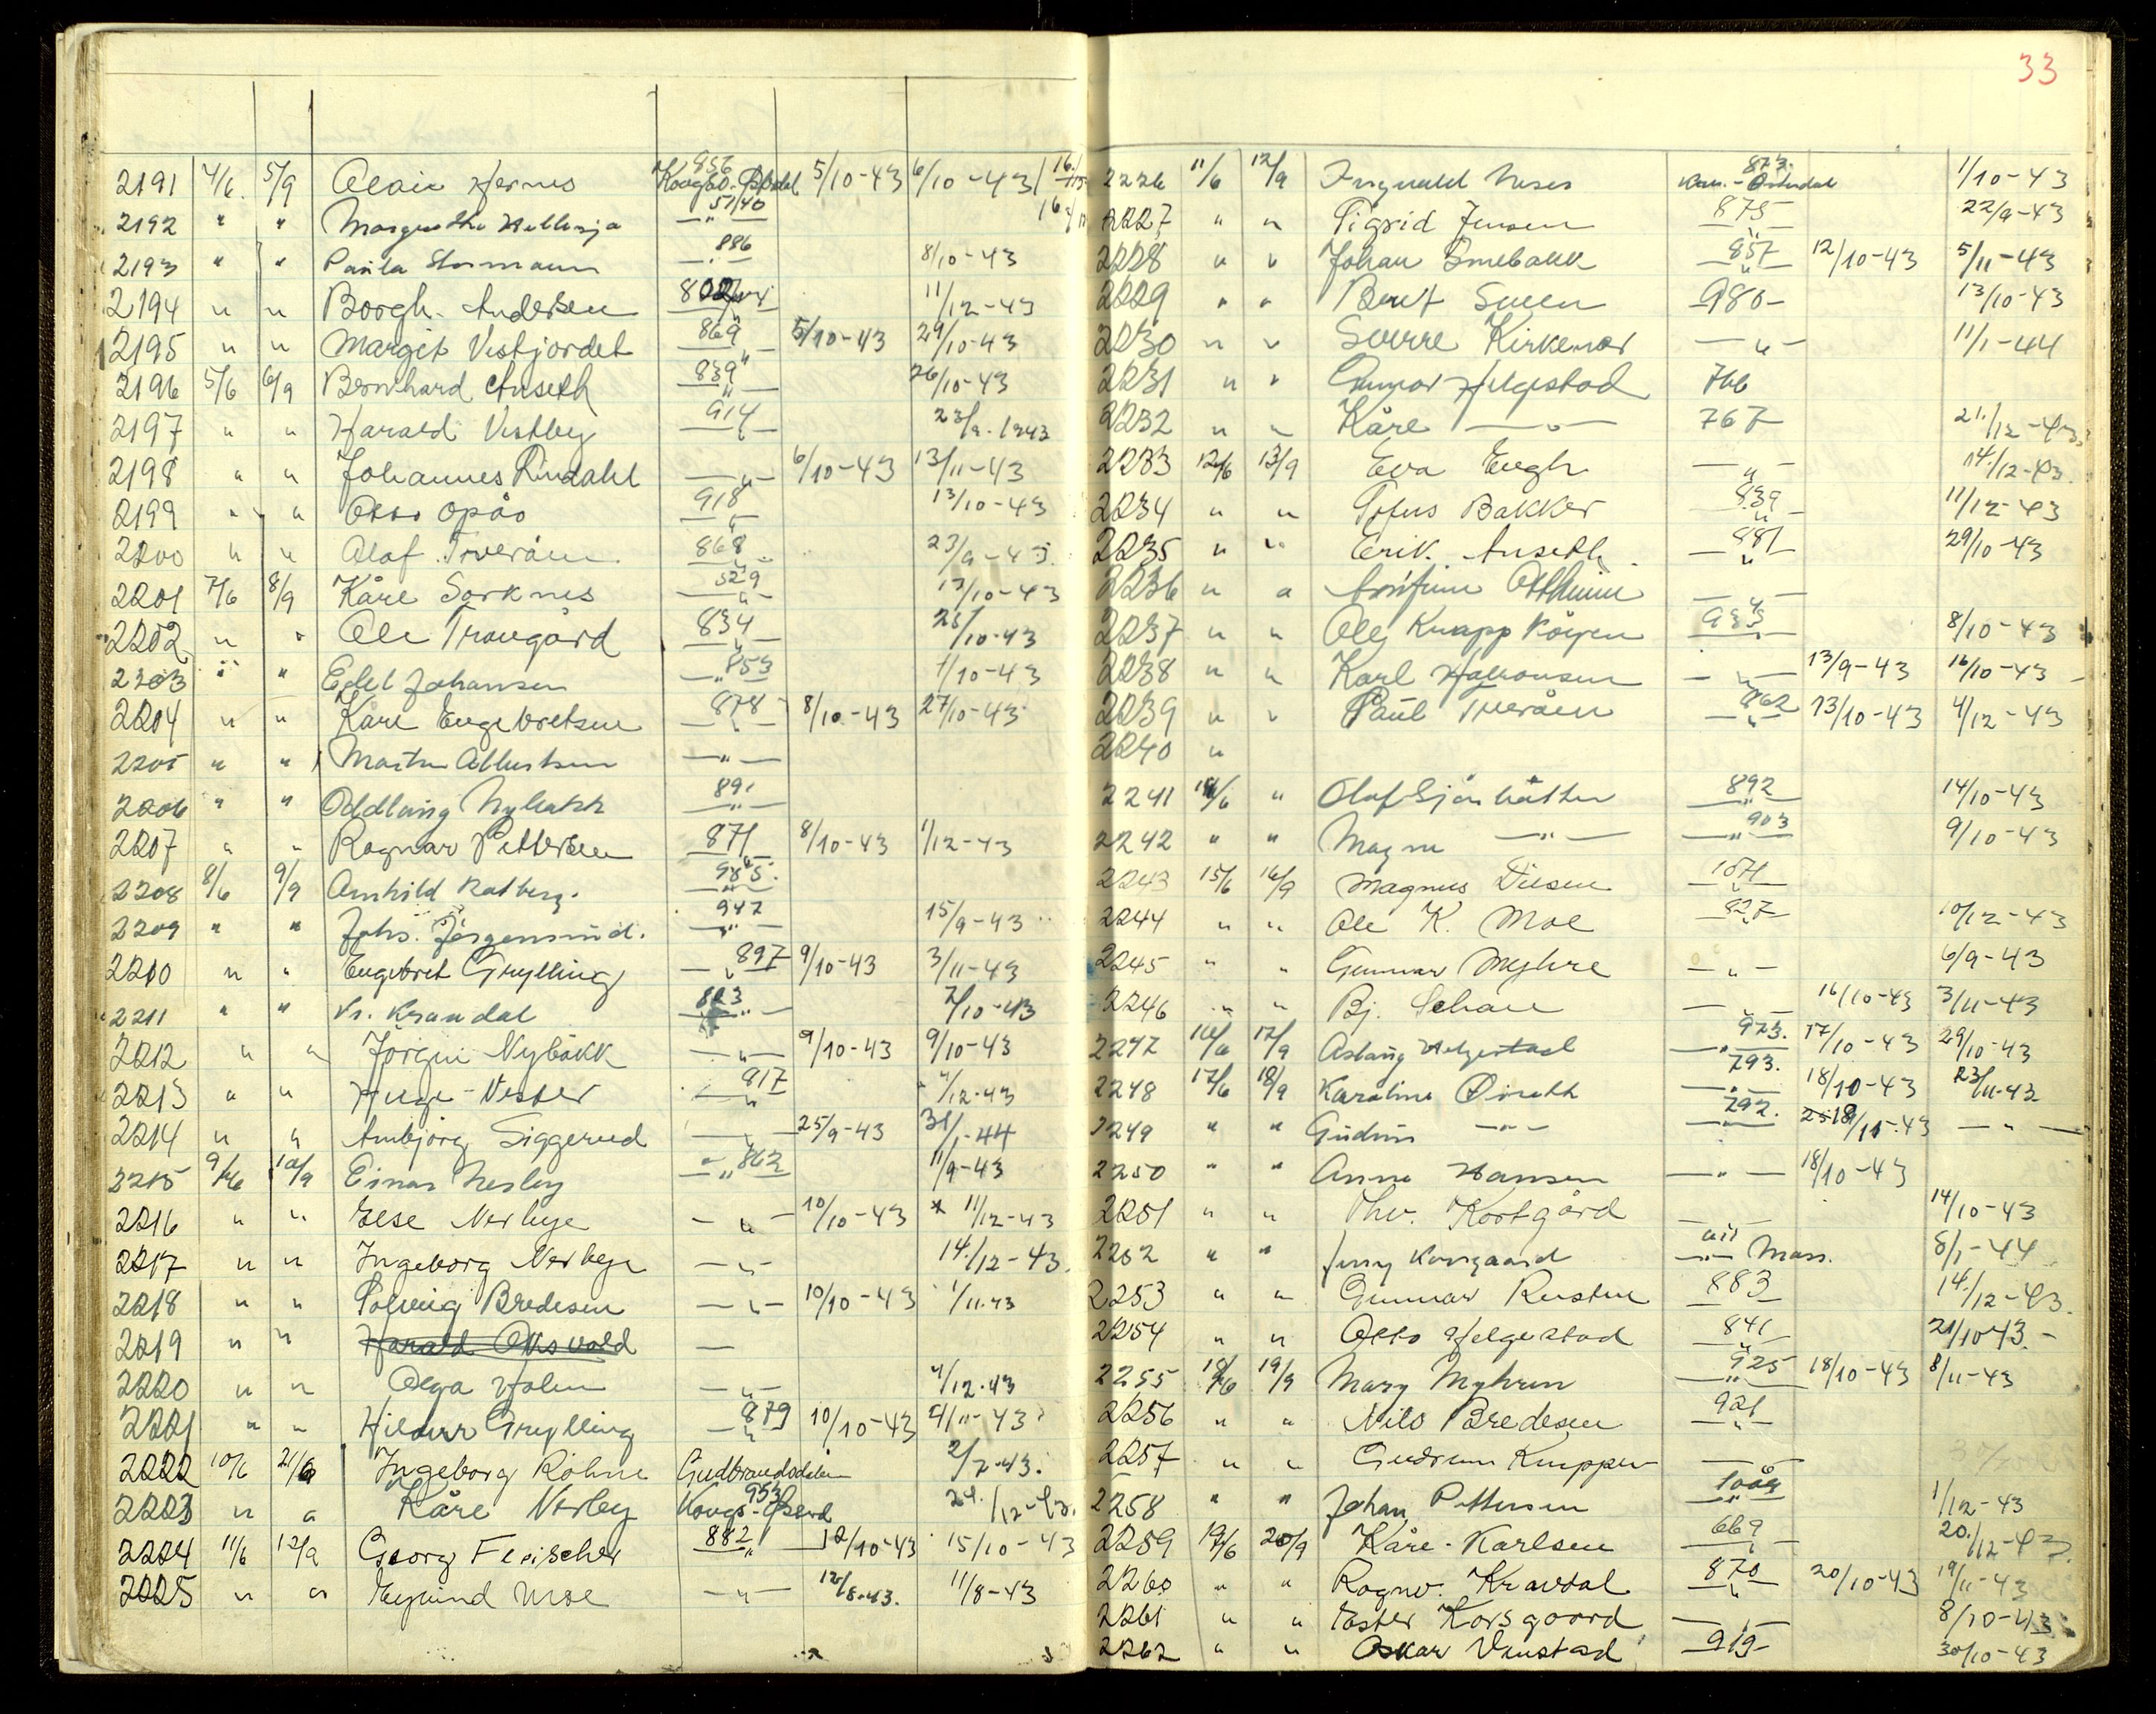 33
2191 4/6. 5/9 Olaie Hernes 856 5/10-43 6/10-43
2192 " " 57/40 —"—
2193 " " Paula 886 —"— 8/10-43
2194 " " Borgh. Andersen 11/12-43
2195 " " Margit Vestjordet 869 —"— 5/10-43 29/10-43
2196 5/6 6/9 Bernhard Anseth 839 —"— 26/10-43
2197 " " Harald Vestby 914 —"— 23/9.1943
2198 " " Johannes Rindahl —"— 6/10-43 13/11-43
2199 " " Otto Opås 918 —"— 13/10-43
2200 " " Olaf Tveråen 868 —"— 23/9-43.
2201 7/6 8/9 Kåre Sorknes 529 —"— 13/10-43
2202 " " Ole Trangård 834 —"— 10-43
2203 " " Edel Johansen 853 —"— 1/10-43
2204 " " Kåre Engebretsen 878 —"— 8/10-43 27/10-43
2205 " " Martin Albertsen —"—
2206 " " Oddlaug Nybakk 891 —"—
2207 " " Ragnar Pettersen 871 —"— 8/10-43 1/12-43
2208 8/6 9/9 Arnhild 985. —"—
2209 " " Johs. Jörgensrud. 947 —"— 15/9-43
2210 " " Engebret Grylling 897 —"— 9/10-43 3/11-43
2211 " " Kr. Kravdal —"— 2/10-43
2212 " " Jörgen Nybakk —"— 9/10-43 9/10-43
2213 " " Vester 817 —"— 4/12-43
2214 " " Arnbjörg Siggerud —"— 25/9-43 31/1-44
2215 9/6 10/9 Einar Nerby 862 —"— 11/9-43
2216 " " Else Nerbye —"— 10/10-43 * 11/12-43
2217 " " Ingeborg Nerbye —"— 14./12-43.
2218 " " Solveig Bredesen —"— 10/10-43 1/11.43
2219 " " Harald Oksvold —
2220 " " Olga Holm —"— 4/12.43
2221 " " Hildur Grylling 879 —"— 10/10-43 9/11-43
2222 10/6 Ingeborg Röhne Gudbrandsdalen 2/7-43.
2223 " " Kåre Nerby 953
2224 11/6 12/9 Georg Fleischer 882 —"— 12/10-43 15/10-43
2225 " " Eyvind Moe —"— 12/8-43. 11/8-43
2226 11/6 12/9 873. 1/10-43
2227 " " Sigrid Jensen 875 —"— 22/9-43
2228 " " Johan Smebakk 857 —"— 12/10-43 5/11-43
2229 " " Berit Sveen 980- 13/10-43
2230 " " Sverre Kirkenær —"— 11/1-44
2231 " " Gunnar Helgestad 766
2232 " " Kåre —"— 767 21./12-43.
2233 12/6 13/9 Eva Engh —"— 14./12-43.
2234 " " Tofus Bakker 839 —"— 11/12-43
2235 " " Erik Anseth 881 —"— 29/10-43
2236 " " —"—
2237 " " Ole Knapp 933 —"— 8/10-43
2238 " " Karl Håkonsen —"— 13/9-43 16/10-43
2239 " " Paul Tveråen 862 —"— 13/10-43 4/12-43
2240 "
2241 14/6 " Olaf 892 —"— 14/10-43
2242 " " Magne —"— 903 —"— 9/10-43
2243 15/6 16/9 Magnus Dilsen 1071 —"—
2244 " " Ole K. Moe 827 —"— 10/12-43
2245 " " Gunnar Myhre —"— 6/9-43
2246 " " Bj. —"— 16/10-43 3/11-43
2247 16/6 17/9 Aslaug Helgestad 973. —"— 17/10-43 29/10-43
2248 17/6 18/9 Karoline 793. —"— 18/10-43 23/11-43
2249 " " Gudrun —"— 792. —"— —"—
2250 " " Anne Hansen —"— 18/10-43
2251 " " Thv. Kortgård —"— 14/10-43
2252 " " Jenny Korsgaard —"— Mass. 8/1-44
2253 " " Gunnar Rusten 883 14./12-43.
2254 " " Otto Helgestad 841 —"— 21/10 43.-
2255 18/6 19/9 Mary Myhren 925 —"— 18/10-43 8/11-43
2256 " " Nils Bredesen 921 —"—
2257 " " Gudrun Knappen —"—
2258 " " Johan Pettersen —"— 1/12-43
2259 19/6 20/9 Kåre-Karlsen 669 —"— 20./12-43.
2260 " " Ragnv. Kravdal 870 —"— 20/10-43 19/11-43
2261 " " Ester Korsgaard —"— 8/10-43
2262 " " Oskar Vinstad 919- 30/10-43